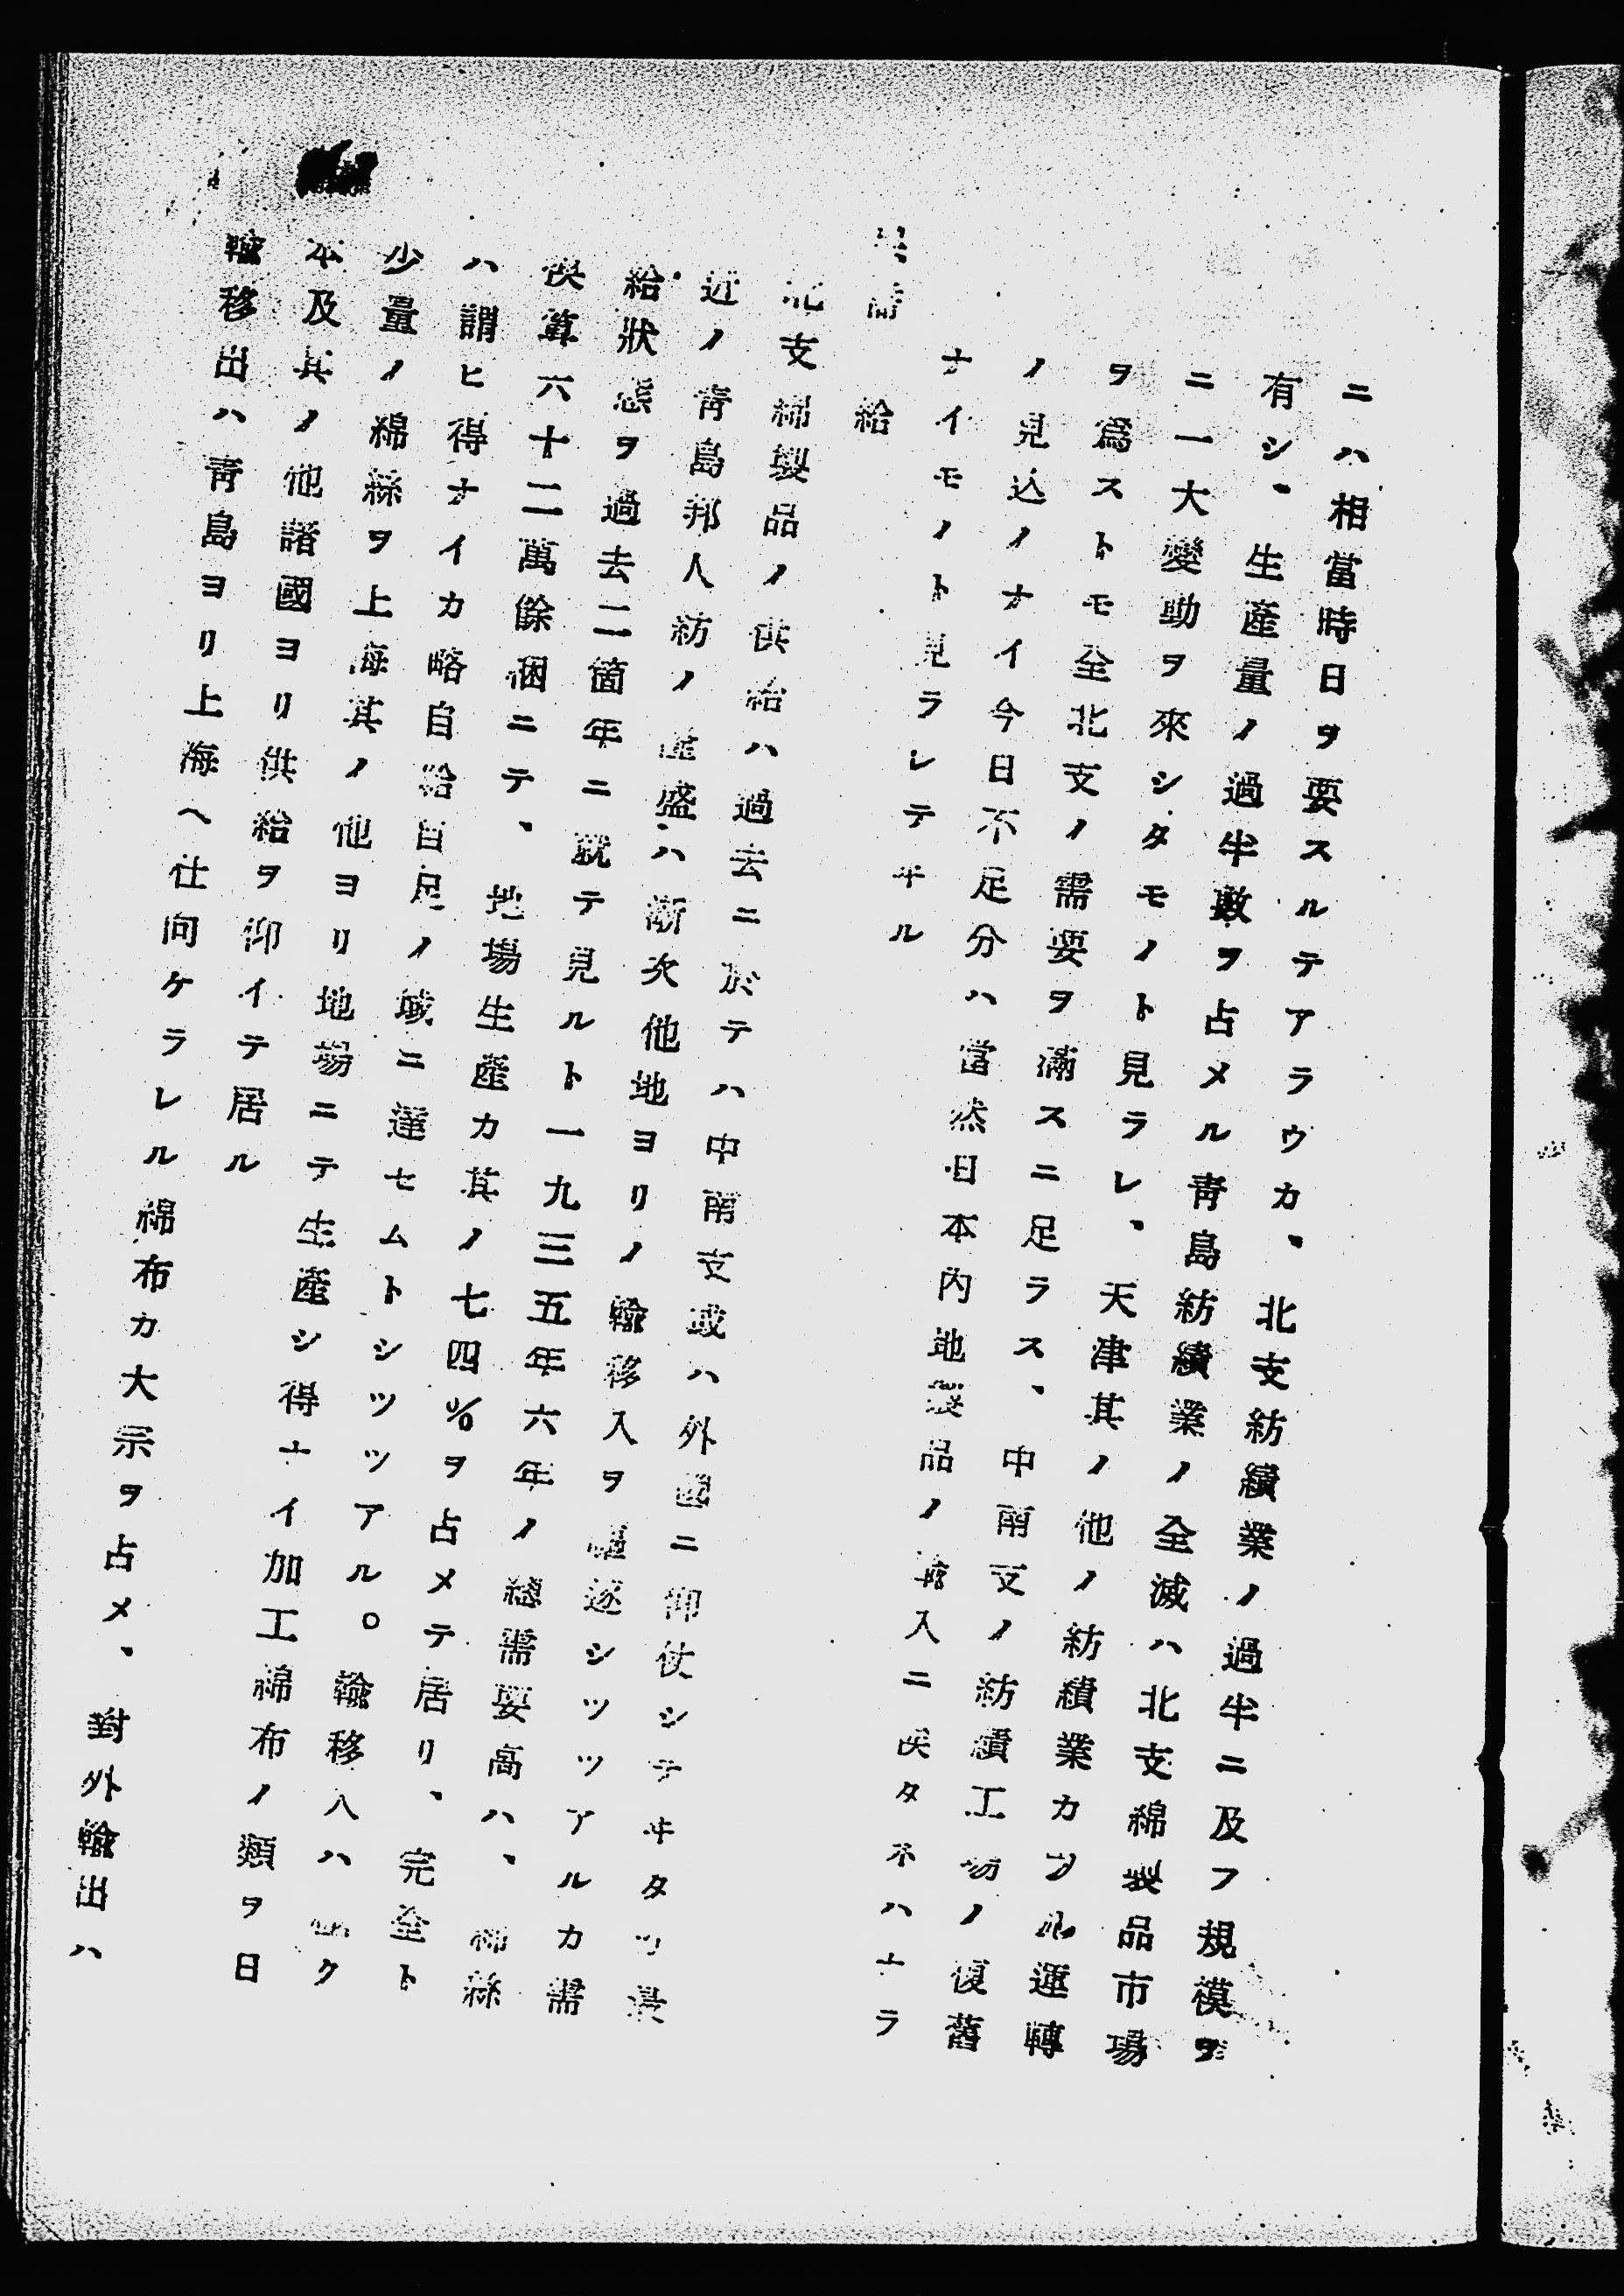 ニハ相當時日ヲ要スルテアラウカ、北支紡績業ノ過半ニ及フ規模ヲ
有シ、生産量ノ過半數ヲ占メル青島紡績業ノ全滅ハ北支綿製品市場
ニ一大變動ヲ來シタモノト見ラレ、天津其ノ他ノ紡績業カフル運轉
ヲ爲ストモ全北支ノ需要ヲ滿スニ足ラス、中南支ノ紡績工場ノ復舊
ノ見込ノナイ今日不足分ハ當然日本內地製品ノ輸入ニ俟タネハナラ
ナイモノト見ラレテヰル
給
北支綿製品ノ供給ハ過去ニ於テハ中南支或ハ外國ニ仰仗シテヰタツ最
近ノ青島邦人紡ノ盛ハ漸次他地ヨリノ輸移入ヲ驅逐シツツアルカ需
給狀態ヲ過去二箇年ニ就テ見ルト一九三五年六年ノ總需要高ハ、綿絲
換算六十二萬餘梱ニテ、地場生産カ其ノ七四%ヲ占メテ居リ、完全ト
ハ謂ヒ得ナイカ略自給自足ノ域ニ達セムトシツツアル。輸移入ハ極ク
少量ノ綿絲ヲ上海其ノ他ヨリ地場ニテ生産シ得ナイ加工綿布ノ類ヲ日
本及其ノ他諸國ヨリ供給ヲ仰イテ居ル
輸移出ハ青島ヨリ上海ヘ仕向ケラレル綿布カ大宗ヲ占メ、對外輸出ハ